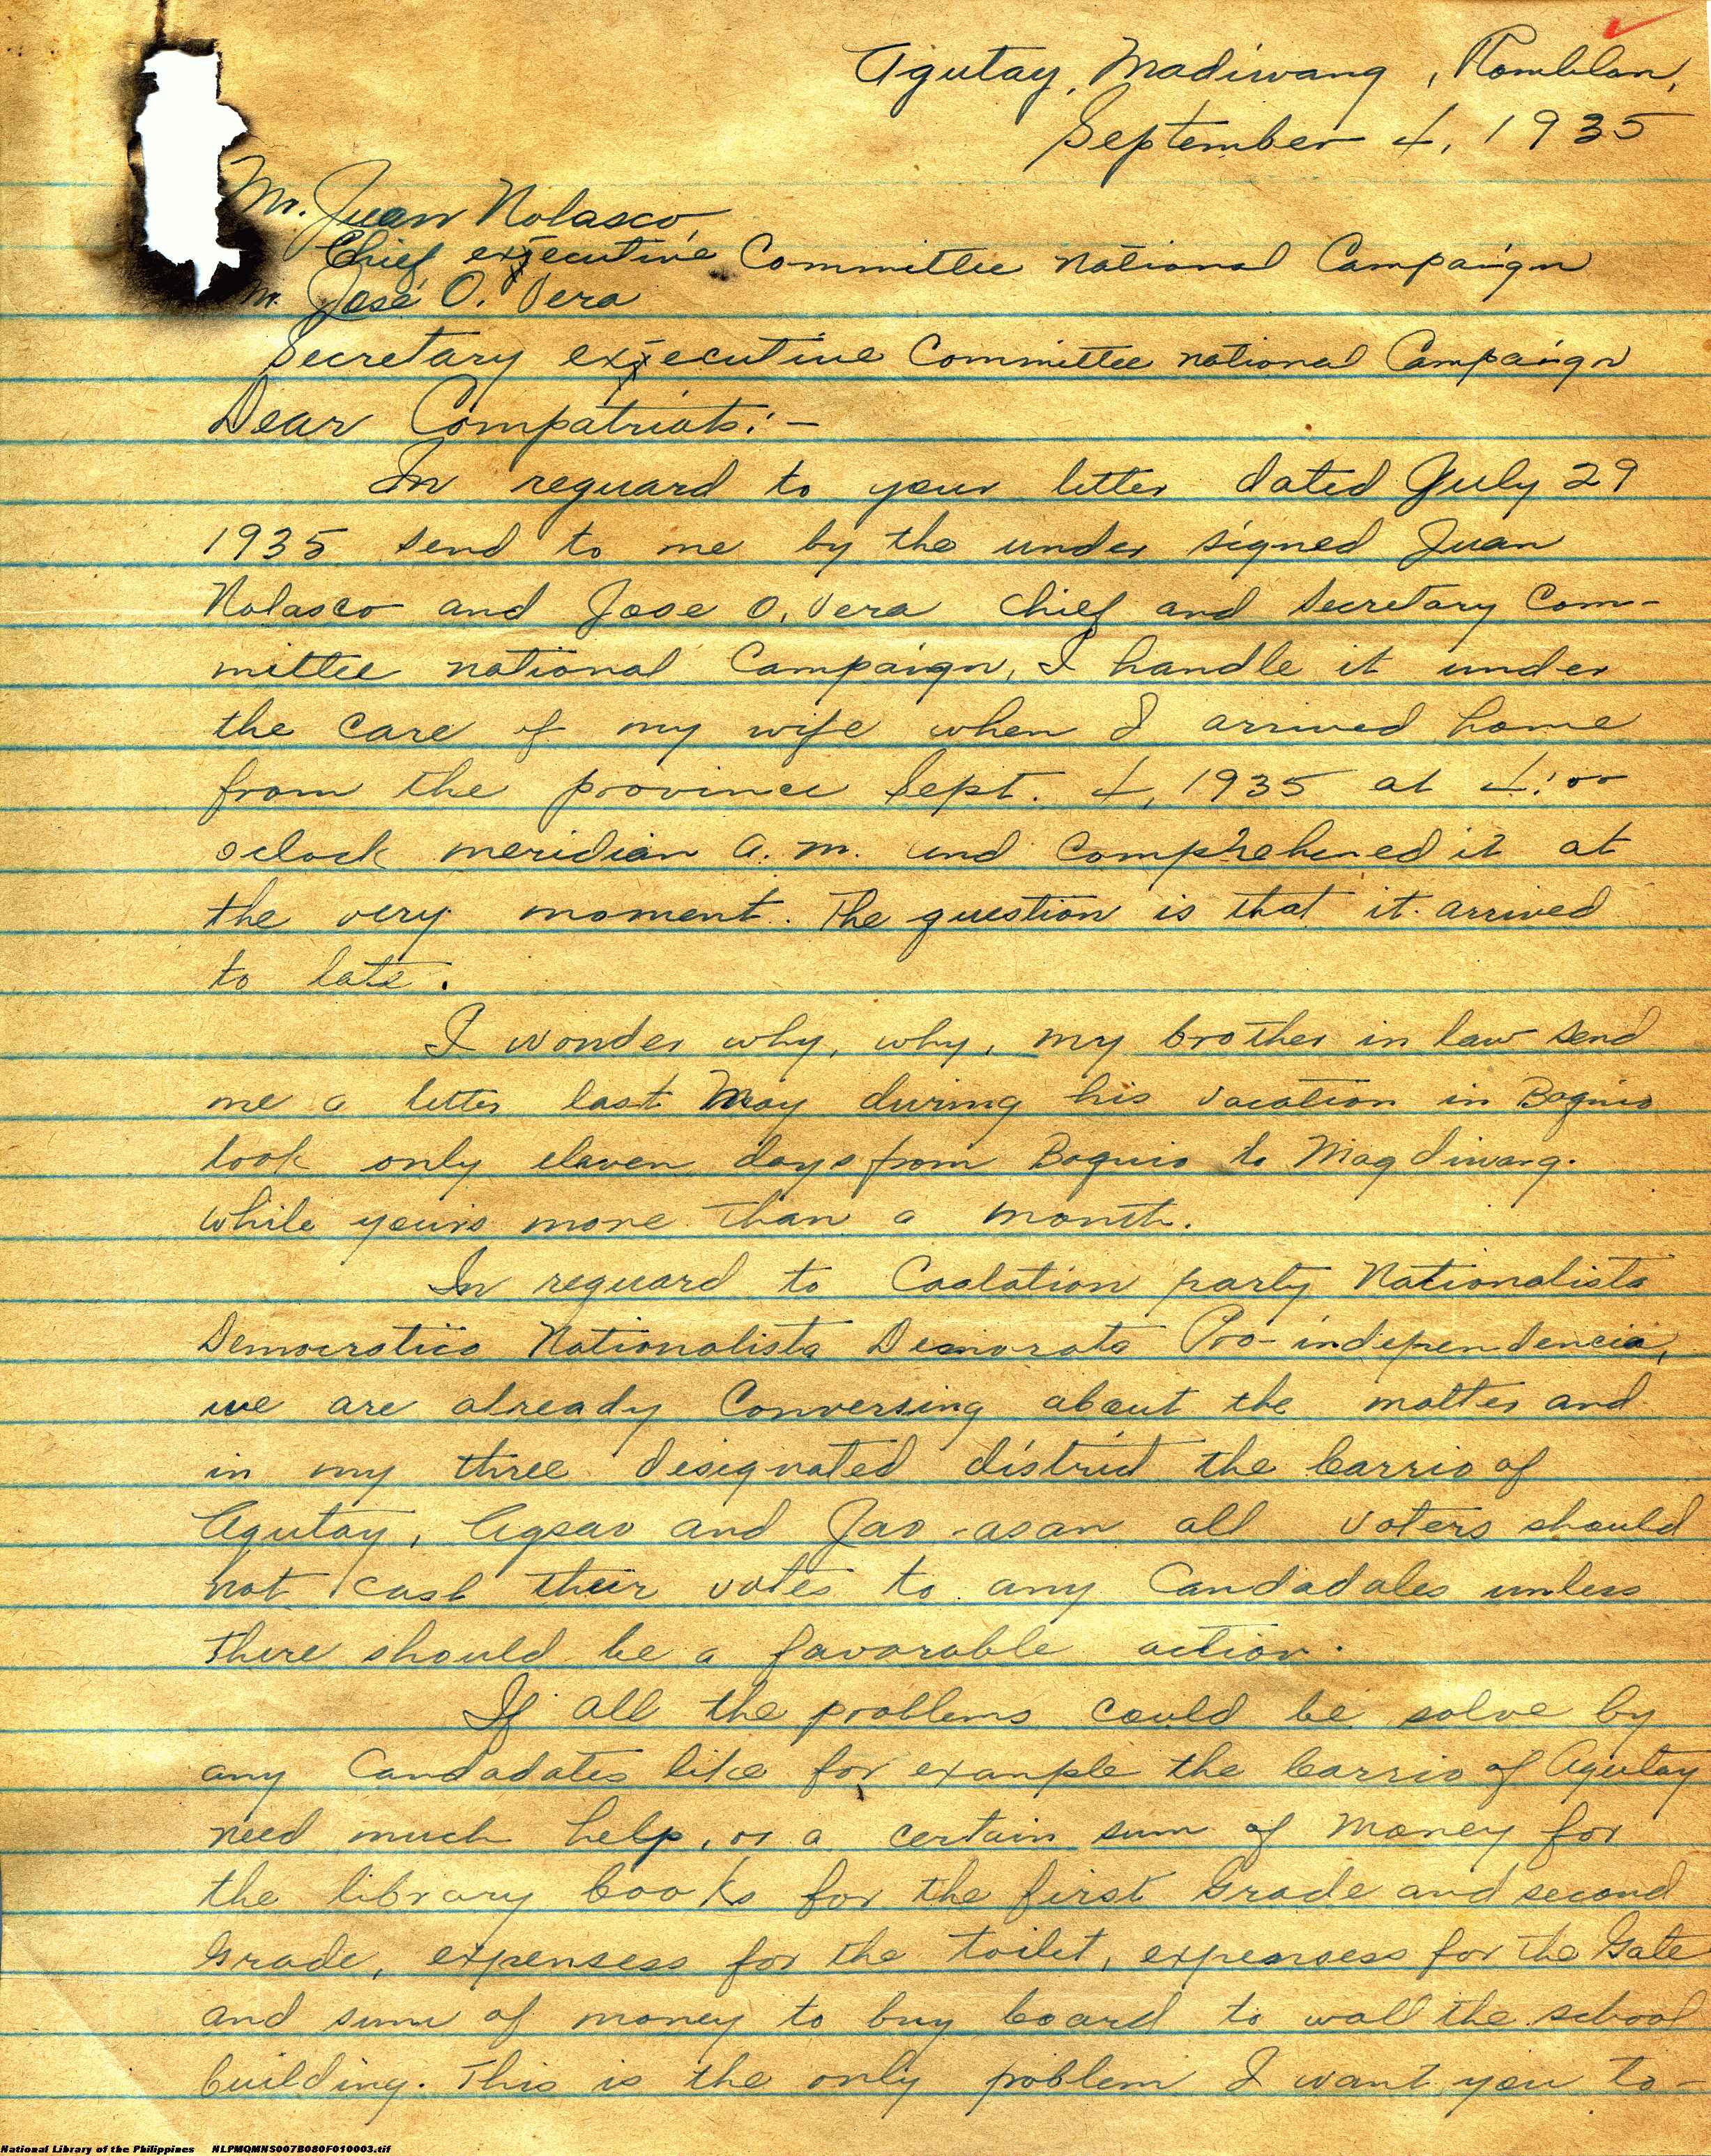 Agutay, Madiwang, Romblon,
September 4, 1935
Mr. Juan Nolasco,
Chief executive Committee national Campaign
Mr. José O. Vera
Secretary executive Committee national Campaign
Dear Compatriots:-
In reguard to your letter dated July 29
1935 send to me by the under signed Juan
Nolasco and Jose O. Vera chief and secretary Com-
mittee national Campaign, I handle it under
the care of my wife when I arrived home
from the province Sept. 4, 1935 at 4:00
oclock meridian a.m. and comprehened it at
the very moment. The question is that it arrived
to late.
I wonder why, why, my brother in law send
me a letter last May during his vacation in Baguio
took only eleven days from Baguio to Magdiwang.
while yours more than a month.
In reguard to Coalation party Nationalista
Democratico Nationalista Democrata Pro-independencia,
we are already Conversing about the matter and
in my three designated district the barrio of
Agutay, Agsao and Jao-asan all voters should
not cast their votes to any Candadates unless
there should be a favorable action.
If all the problems could be solve by
any Candadates like for example the barrio of Agutay
need much help, or a certain sum of money for
the library books for the first Grade and second
Grade, expensess for the toilet, expensess for the Gate
and sum of money to buy board to wall the school
building. This is the only problem I want you to-
National Library of the Philippines NLPMQMNS007B080F010003.tif